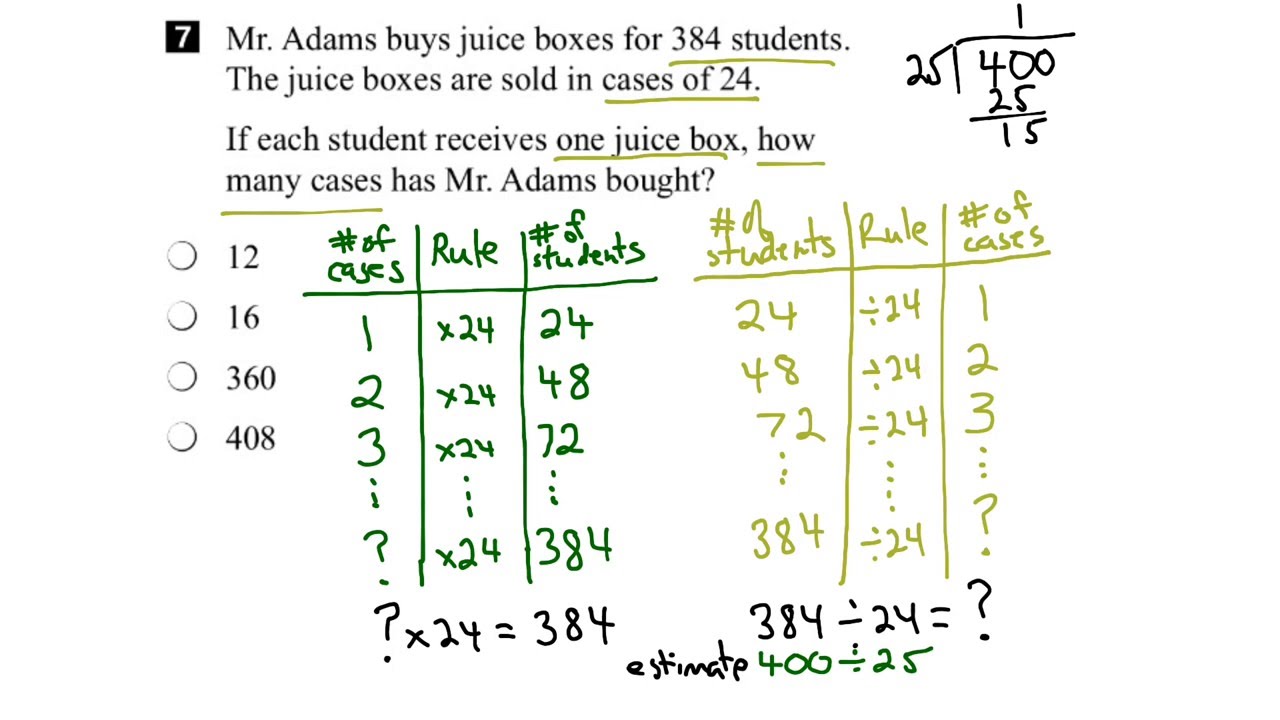 7 Mr. Adams buys juice boxes for 384 students.
The juice boxes are sold in cases of 24.
If each student receives one juice box, how
many cases has Mr. Adams bought?
12
16
360
408
1
25 400
25
15
# of cases Rule # of students
1 ×24 24
2 ×24 48
3 ×24 72
⋮ ⋮ ⋮
? ×24 384
? × 24 = 384
# of students Rule # of cases
24 ÷24 1
48 ÷24 2
72 ÷24 3
⋮ ⋮ ⋮
384 ÷24 ?
384 ÷ 24 = ?
estimate 400 ÷ 25